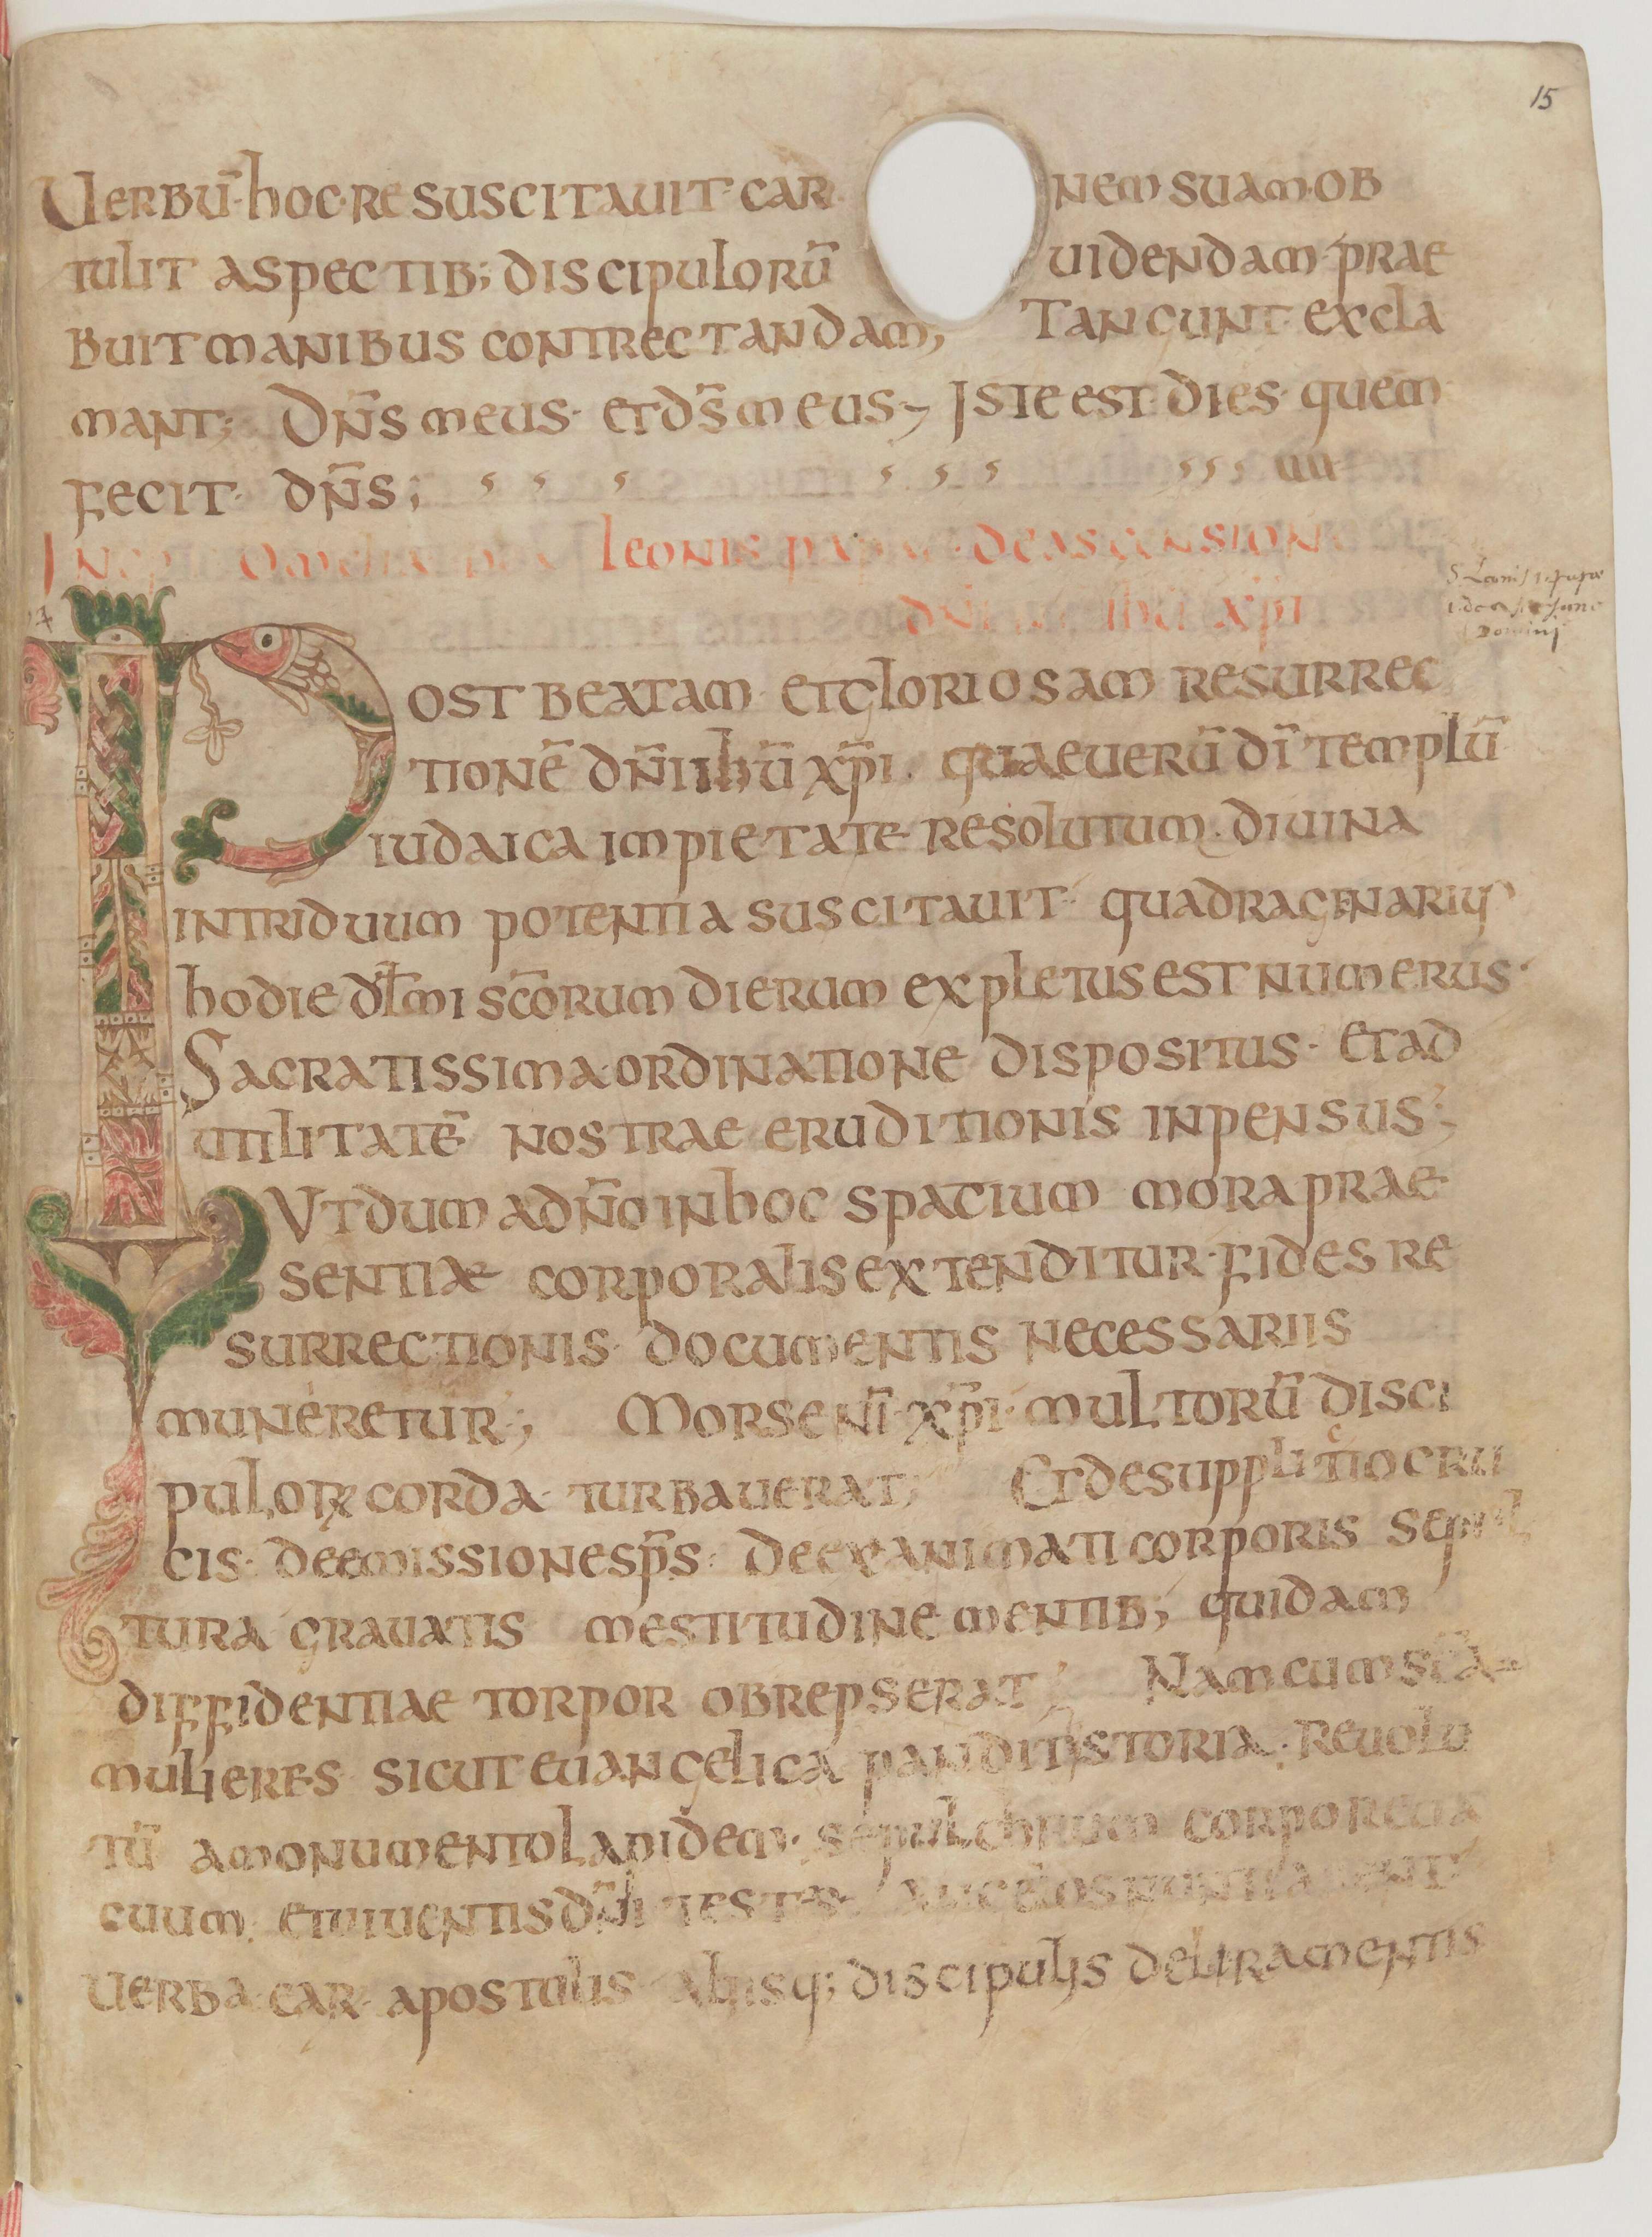 15
Uerbū hoc resuscitauit car nem suam ob
tulit aspectib; discipulorū uidendam prae
buit manibus contrectandam; Tangunt excla
mant; Dn̄s meus et ds̄ meus; Iste est dies quem
fecit dn̄s;
Leonis de ascension
dn̄i ihū xp̄i
Post beatam et gloriosam resurrec
tionē dn̄i ihū xp̄i. quae uerū dī templū
iudaica impietate resolutum. diuina
in triduum potentia suscitauit quadragenarius
hodie dlm̄i sc̄orum dierum expletus est numerus.
Sacratissima ordinatione dispositus. et ad
utilitatē nostrae eruditionis inpensus;
Ut dum a dn̄o in hoc spatium mora prae
sentiae corporalis extenditur. fides re
surrectionis documentis necessariis
muneretur; Mors enī xp̄i multorū disci
pulorꝝ corda turbauerat; Et de supplicio cru
cis. de emissione sp̄s. de exanimati corporis sepul
tura grauatis mestitudine mentib; quidam
diffidentiae torpor obrepserat; Nam cum sc̄ae
mulieres sicut euangelica pandit historia. reuolu
tū a monumento lapidem. sepulchrum corpore ua
cuum. et uiuentis dn̄i testes angelos nuntiarent
uerba car apostolis aliisq; discipulis deliramentis